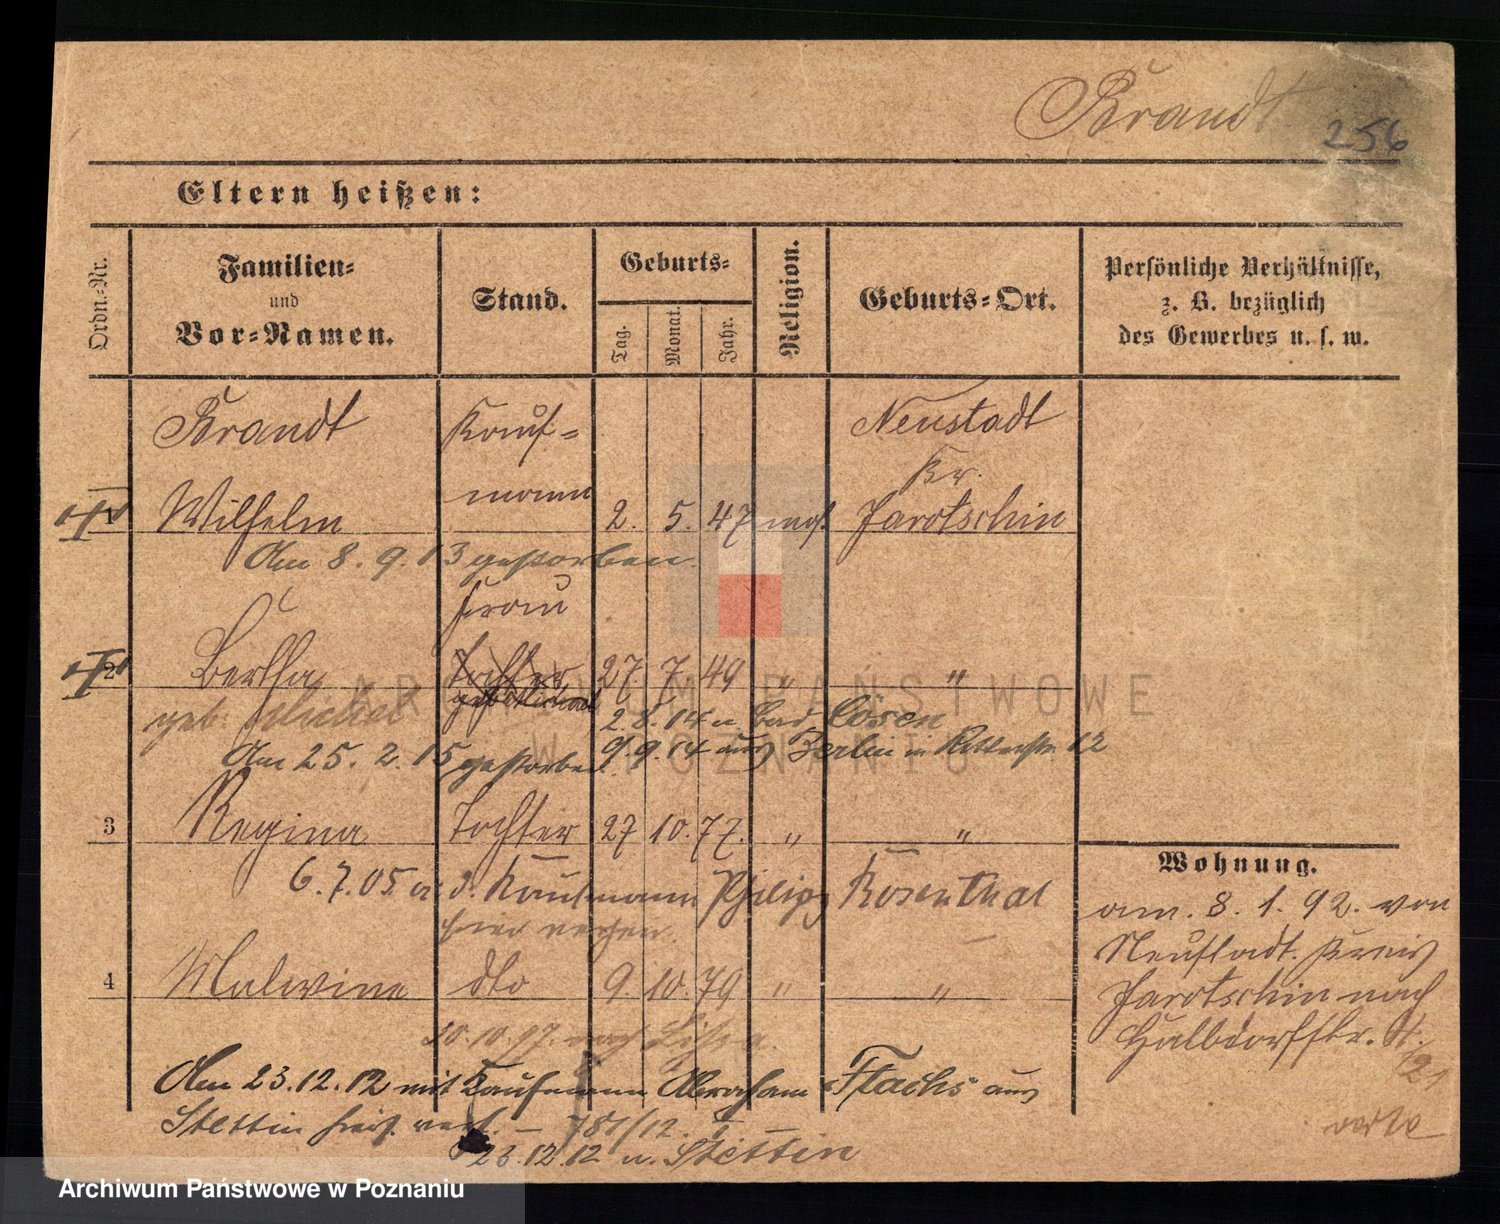 Brandt
256
Eltern heißen:
Ordn.-Nr.
Familien-
und
Vor-Namen.
Stand.
Geburts-
Tag.
Monat.
Jahr.
Religion.
Geburts-Ort.
Persönliche Verhältnisse,
z. B. bezüglich
des Gewerbes u. s. w.
Brandt Kauf- Neustadt
mann Kr.
1 Wilhelm 2. 5. 47 mos. Jarotschin
Am 8. 9. 13 gestorben
Frau
2 Bertha Tochter 27 7 49 " "
geb. Michel
2.8.14 n. Bad Cösen
Am 25. 2. 15 gestorben. 9.9.14 aus Berlin in Ritterstr. 12
3 Regina Tochter 27 10. 77. " "
6. 7. 05 a. d. Kaufmann Philipp Rosenthal
hier
4 Malwine dto 9. 10. 79 " "
10. 10. 97. nach
Am 23.12.12 mit Kaufmann Abraham Flachs aus
Stettin hier verh. – 781/12.
23.12.12 n. Stettin
Wohnung.
am. 8. 1. 92. von
Neustadt. Kreis
Jarotschin nach
Halbdorfstr.
verte
ARCHIWUM PAŃSTWOWE
W POZNANIU
Archiwum Państwowe w Poznaniu